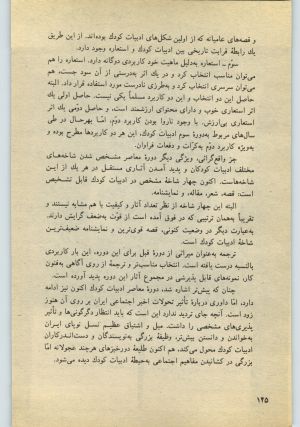 و قصه‌های عامیانه که از اولین شکل‌های ادبیات کودک بوده‌اند. از این طریق
یک رابطهٔ قرابت تاریخی بین ادبیات کودک و استعاره وجود دارد.
سوّم ـ استعاره به‌دلیل ماهیت خود کاربردی دوگانه دارد. استعاره را هم
می‌توان مناسب انتخاب کرد و در یک اثر به‌درستی از آن سود جست، هم
می‌توان سرسری انتخاب کرد و به‌طرزی نادرست مورد استفاده قرار داد. البته
حاصل این دو انتخاب و این دو کاربرد مسلماً یکی نیست. حاصل اولی یک
اثر استعاری خوب و دارای محتوای ارزشمند است، و حاصل دوّمی یک اثر
استعاری بی‌ارزش. با وجود ناروا بودن کاربرد دوّم، امّا بهرحال در طی
سال‌های مربوط به‌دورهٔ سوم ادبیات کودک، این هر دو کاربردها مطرح بوده و
به‌ویژه کاربرد دوّم به‌کرّات و دفعات فراوان.
جز واقع‌گرائی، ویژگی دیگر دورهٔ معاصر مشخص شدن شاخه‌های
مختلف ادبیات کودکان و پدید آمدن آثاری مستقل در هر یک از این
شاخه‌هاست. اکنون چهار شاخهٔ مشخص در ادبیات کودک قابل تشخیص
است، قصه، شعر، مقاله، و نمایشنامه.
البته این چهار شاخه از نظر تعداد آثار و کیفیت با هم مشابه نیستند و
تقریباً به‌همان ترتیبی که در فوق آمده است از قوّت به‌ضعف گرایش دارند.
به‌عبارت دیگر در وضعیت کنونی، قصه قوی‌ترین و نمایشنامه ضعیف‌ترین
شاخهٔ ادبیات کودک است.
ترجمه به‌عنوان میراثی از دورهٔ قبل برای این دوره، این بار کاربردی
بالنسبه درست یافته است. انتخاب مناسب‌تر و ترجمه از روی آگاهی به‌فنون
کار، نمونه‌های قابل پذیرشی در مجموع آثار این دوره پدید آورده است.
چنان که بیش‌تر اشاره شد، دورهٔ معاصر ادبیات کودک هنوز ادامه
دارد، امّا داوری دربارهٔ تأثیر تحولات اخیر اجتماعی ایران بر روی آن هنوز
زود است. آنچه جای تردید ندارد این است که باید انتظار دگرگونی‌ها و تأثیر
پذیری‌های مشخصی را داشت. میل و اشتیاق عظیم نسل نوپای ایران
به‌خواندن و دانستن بیش‌تر، وظیفهٔ بزرگی به‌نویسندگان و دست‌اندرکاران
ادبیات کودک محول می‌کند، هم اکنون طلیعهٔ دورخیزهای هرچند عجولانه امّا
بزرگی در کشانیدن مفاهیم اجتماعی به‌حیطهٔ ادبیات کودک دیده می‌شود.
۱۲۵